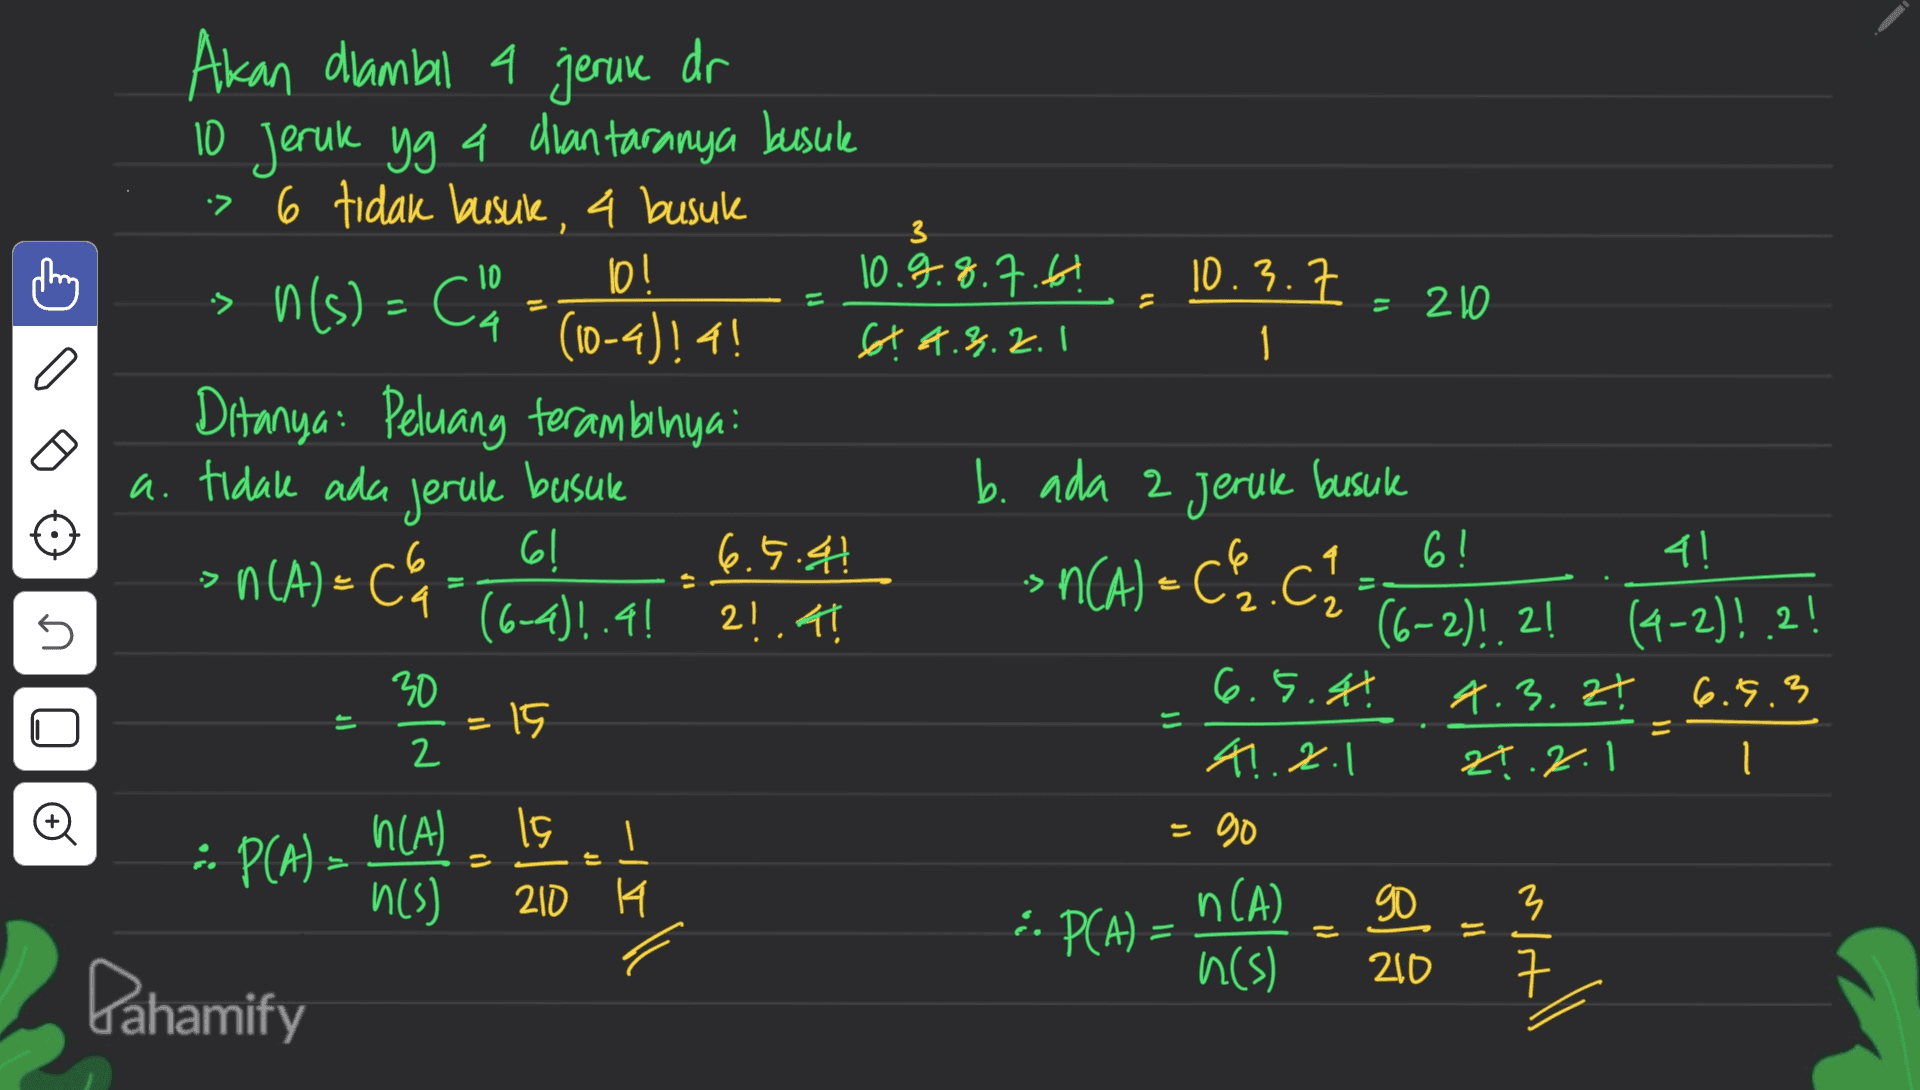 Akan diambil 4 jeruk dr
10 jeruk yg 4 diantaranya busuk
-> 6 tidak busuk, 4 busuk
-> n(s) = C^10_4 = 10! / (10-4)! 4! = 10.9.8.7.6! / 6! 4.3.2.1 = 10.3.7 / 1 = 210
3
Ditanya: Peluang terambilnya:
a. tidak ada jeruk busuk
-> n(A) = C^6_4 = 6! / (6-4)!.4! = 6.5.4! / 2!.4!
= 30 / 2 = 15
∴ P(A) = n(A) / n(s) = 15 / 210 = 1 / 14
b. ada 2 jeruk busuk
-> n(A) = C^6_2 . C^4_2 = 6! / (6-2)!.2! . 4! / (4-2)!.2!
= 6.5.4! / 4!.2.1 . 4.3.2! / 2!.2.1 = 6.5.3 / 1
= 90
∴ P(A) = n(A) / n(s) = 90 / 210 = 3 / 7
Pahamify